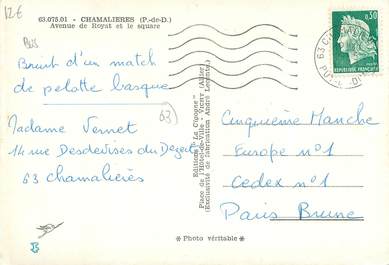 12€
63.075.01 - CHAMALIERES (P.-de-D.)
Avenue de Royat et le square
Bruit d'un match
de pelotte basque
63
Madame Vernet
14 rue Desdevises du Dezert
63 chamalières
Editions "La Cigogne"
Place de l'Hôtel-de-Ville - VICHY (Allier)
(Exclusivité de fabrication André Leconte)
0,30
REPUBLIQUE FRANÇAISE
Cinquième Manche
Europe n°1
Cedex n°1
Paris Brune
* Photo véritable *